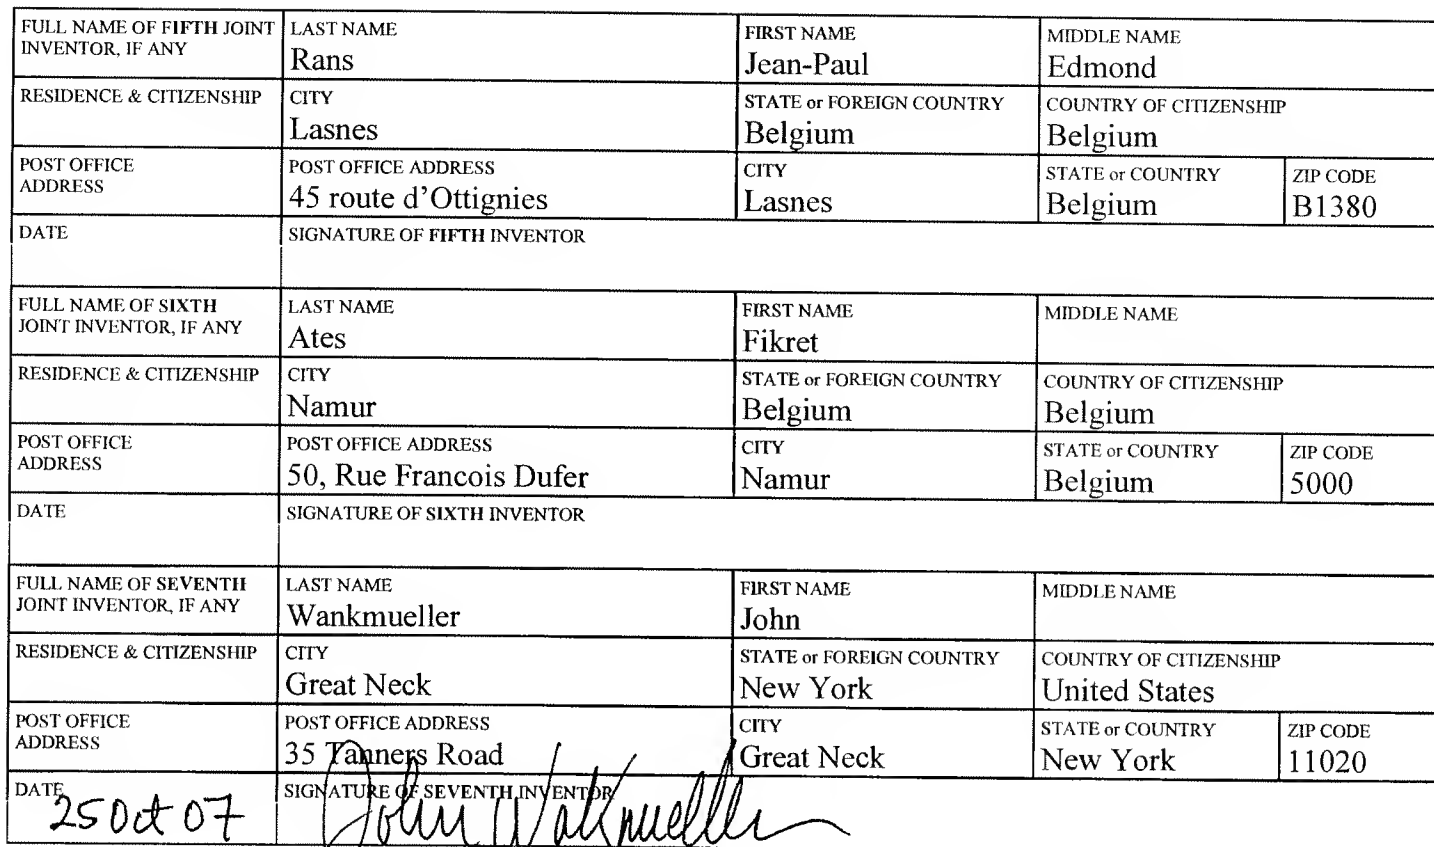 FULL NAME OF FIFTH JOINT INVENTOR, IF ANY
LAST NAME
Rans
FIRST NAME
Jean-Paul
MIDDLE NAME
Edmond
RESIDENCE & CITIZENSHIP
CITY
Lasnes
STATE or FOREIGN COUNTRY
Belgium
COUNTRY OF CITIZENSHIP
Belgium
POST OFFICE
ADDRESS
POST OFFICE ADDRESS
45 route d'Ottignies
CITY
Lasnes
STATE or COUNTRY
Belgium
ZIP CODE
B1380
DATE
SIGNATURE OF FIFTH INVENTOR
FULL NAME OF SIXTH
JOINT INVENTOR, IF ANY
LAST NAME
Ates
FIRST NAME
Fikret
MIDDLE NAME
RESIDENCE & CITIZENSHIP
CITY
Namur
STATE or FOREIGN COUNTRY
Belgium
COUNTRY OF CITIZENSHIP
Belgium
POST OFFICE
ADDRESS
POST OFFICE ADDRESS
50, Rue Francois Dufer
CITY
Namur
STATE or COUNTRY
Belgium
ZIP CODE
5000
DATE
SIGNATURE OF SIXTH INVENTOR
FULL NAME OF SEVENTH
JOINT INVENTOR, IF ANY
LAST NAME
Wankmueller
FIRST NAME
John
MIDDLE NAME
RESIDENCE & CITIZENSHIP
CITY
Great Neck
STATE or FOREIGN COUNTRY
New York
COUNTRY OF CITIZENSHIP
United States
POST OFFICE
ADDRESS
POST OFFICE ADDRESS
35 Tanners Road
CITY
Great Neck
STATE or COUNTRY
New York
ZIP CODE
11020
DATE
25 Oct 07
SIGNATURE OF SEVENTH INVENTOR
John Wankmueller